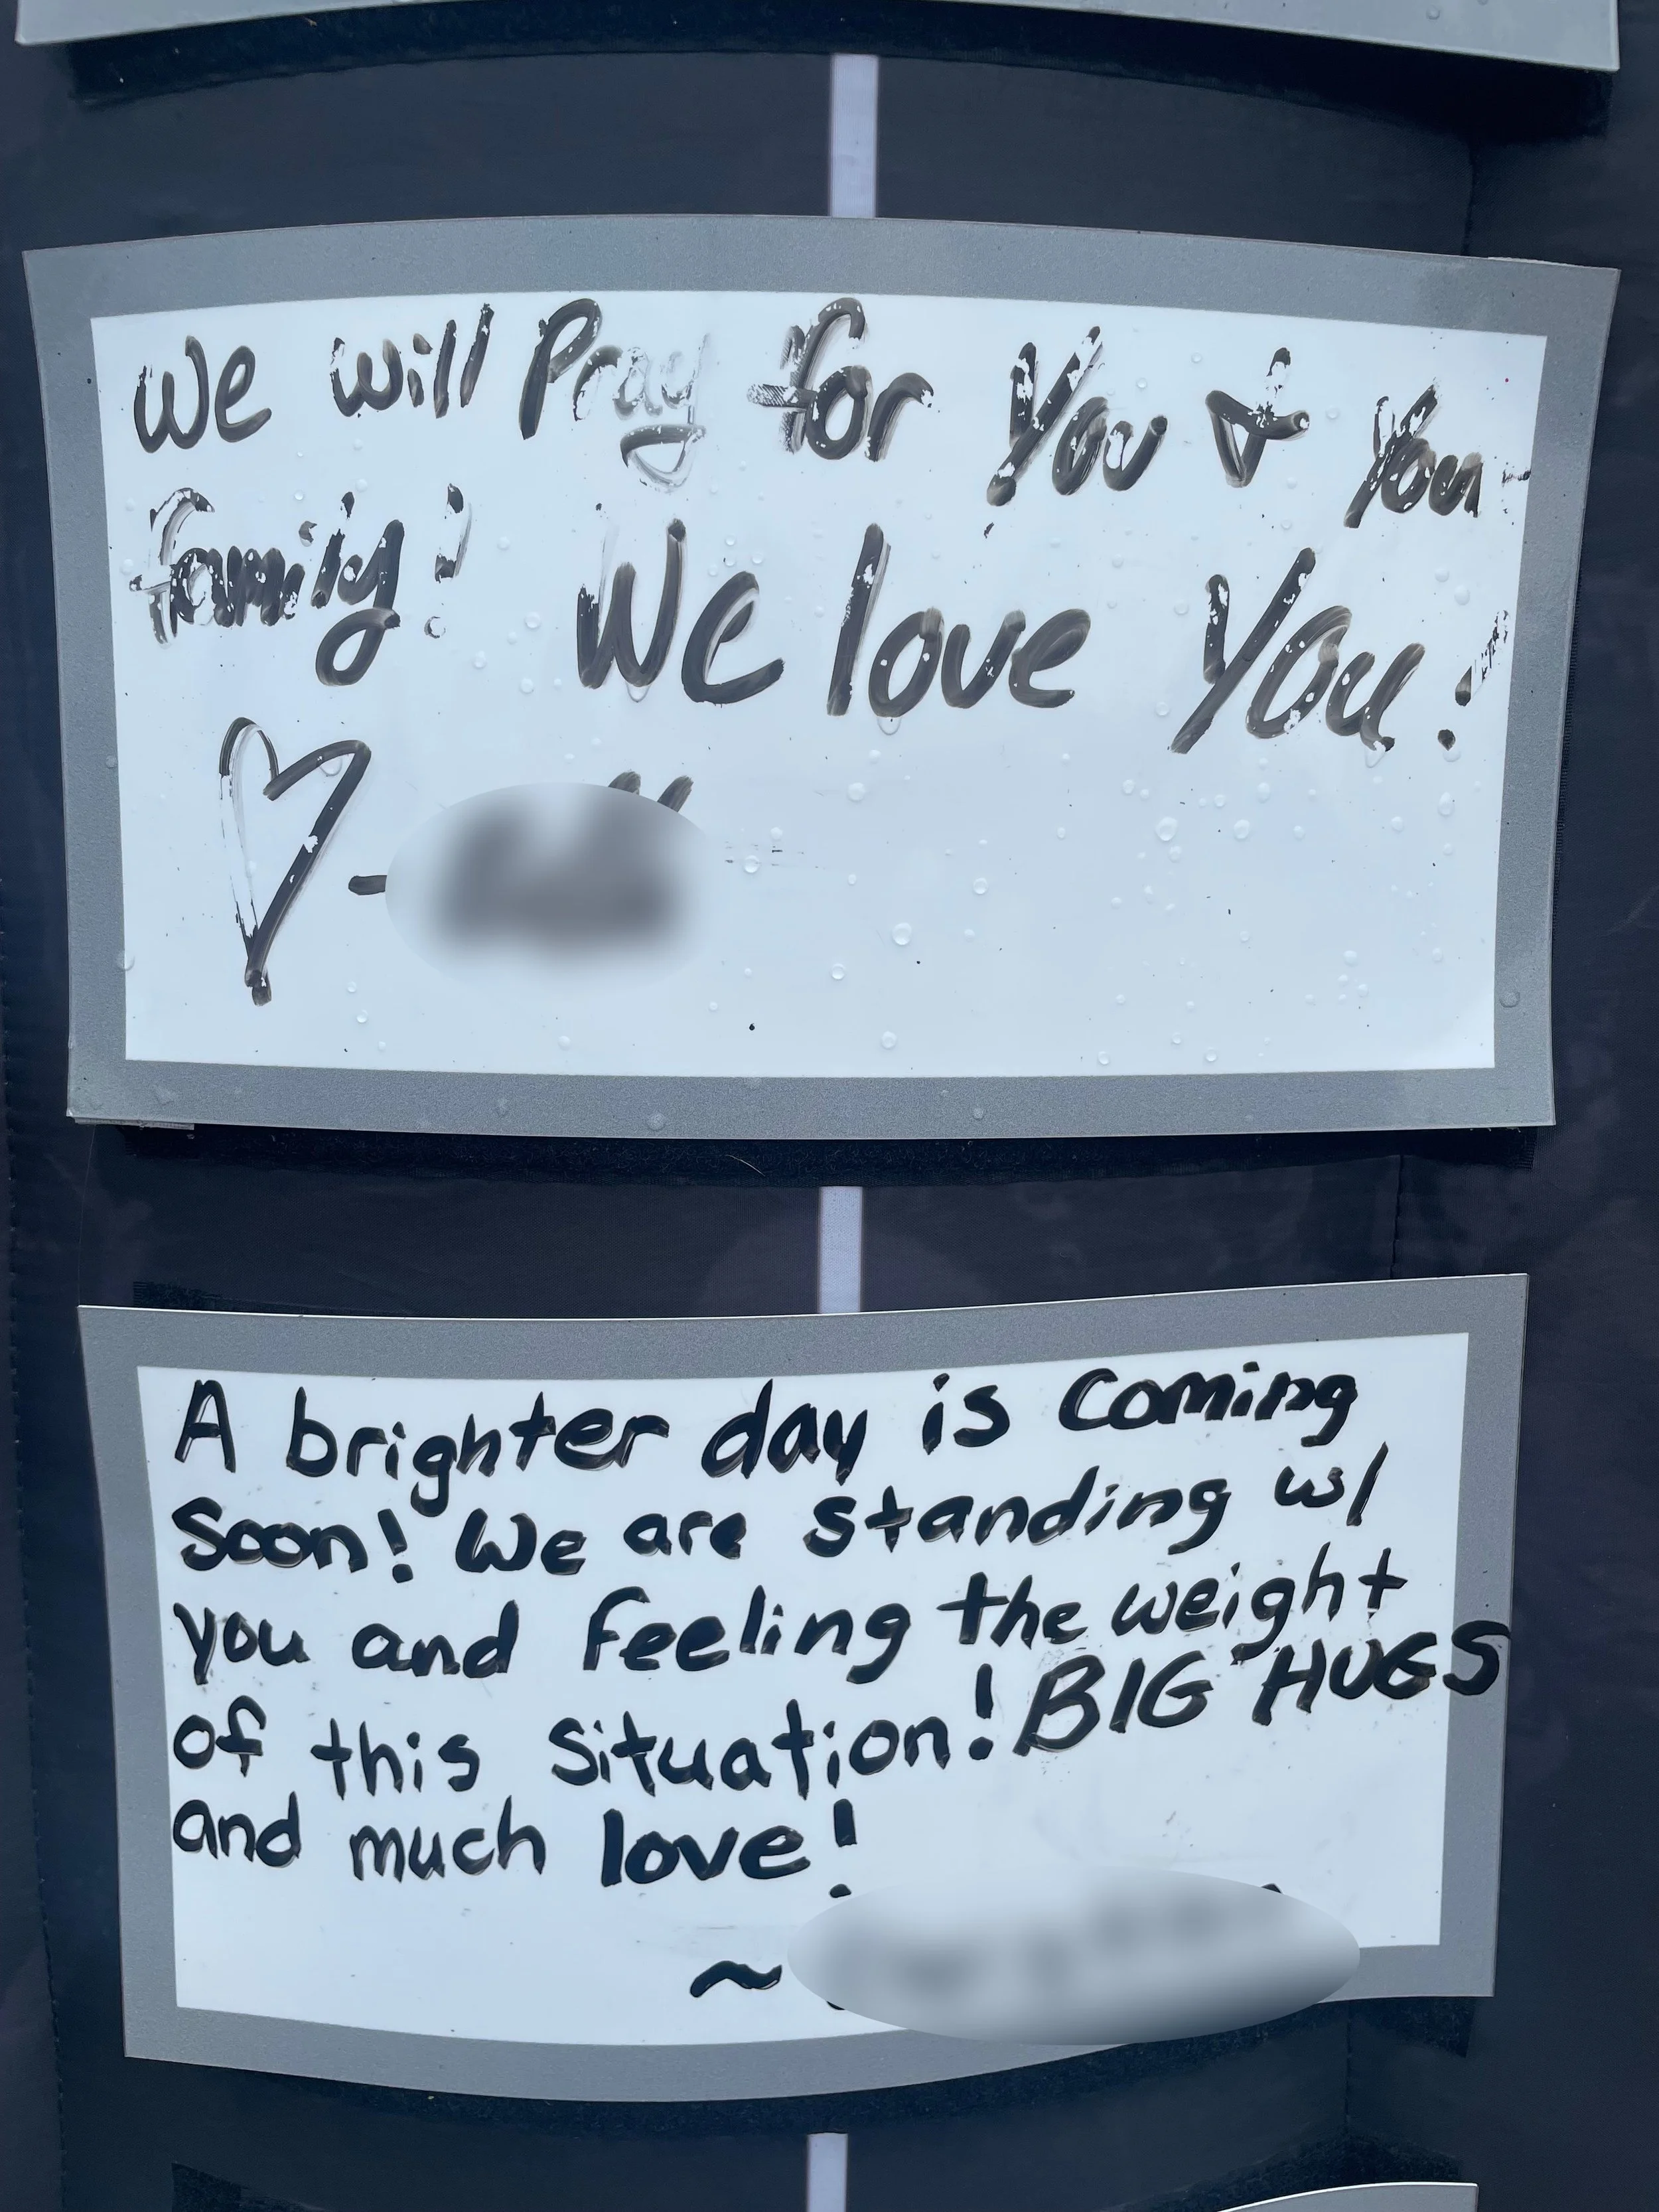 We will Pray for You & Your
family! We love You!
♡ -
A brighter day is coming
soon! We are standing w/
you and feeling the weight
of this situation! BIG HUGS
and much love!
~